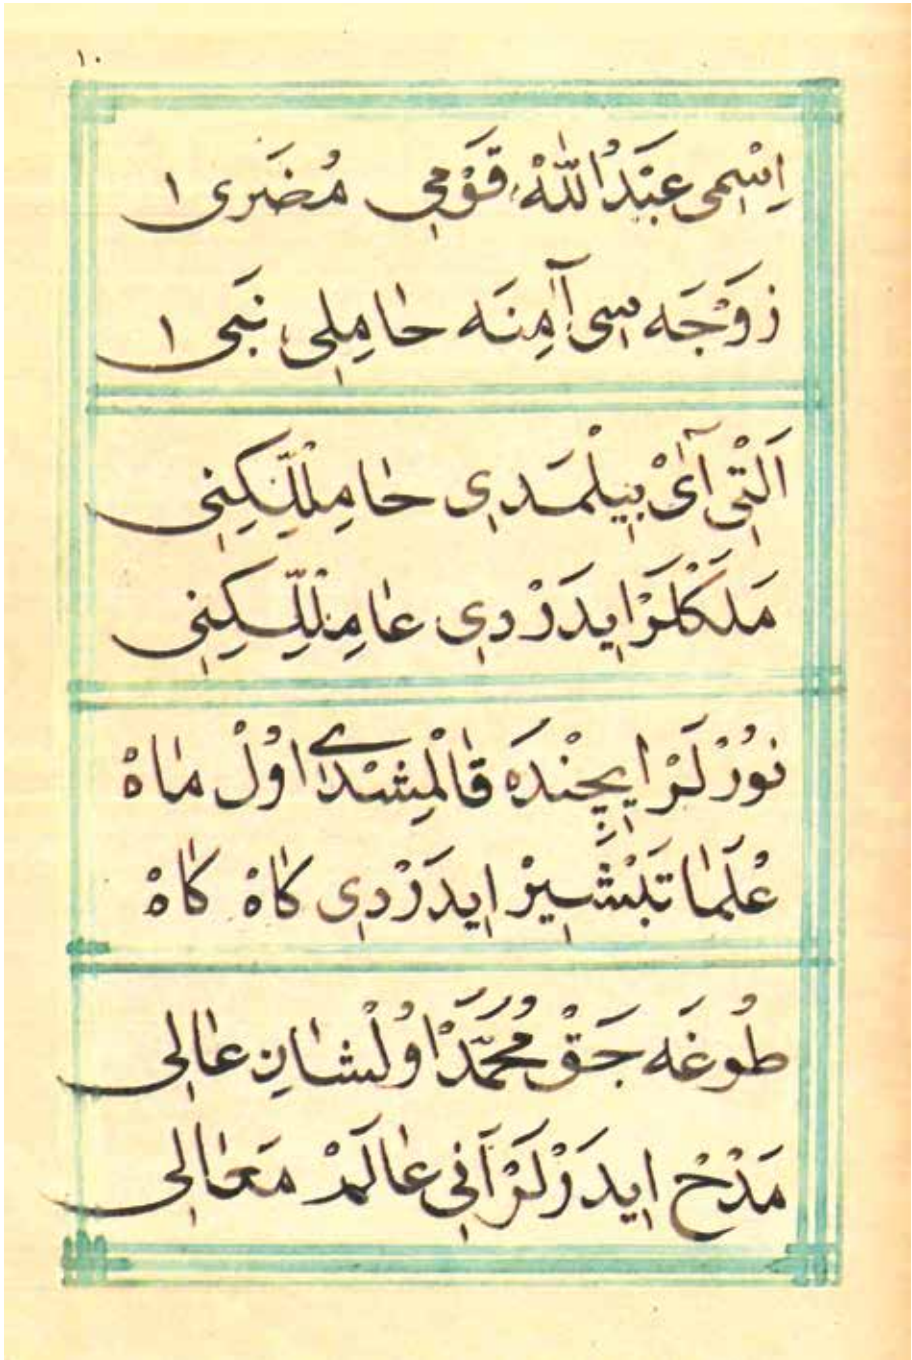 ١٠
اِسْمِى عَبْدُاللّٰهْ، قَوْمِى مُضَرِى ١
زَوْجَه سِى آمِنَه حَامِلِى نَبِى ١
اَلْتِى آىْ بِيلْمَدِى حَامِلْلِيكِنِى
مَلَكْلَرْ ايدَرْدِى عَامِلْلِيكِنِى
نُورْلَرْ اِيچِنْدَه قَالْمِشْدِى اُولْ مَاهْ
عُلَمَا تَبْشِيرْ ايدَرْدِى كَاهْ كَاهْ
طُوغَه جَقْ مُحَمَّدْ اُولْشَانِ عَالِى
مَدْحْ ايدَرْلَرْ آنِى عَالَمْ مَعَالِى